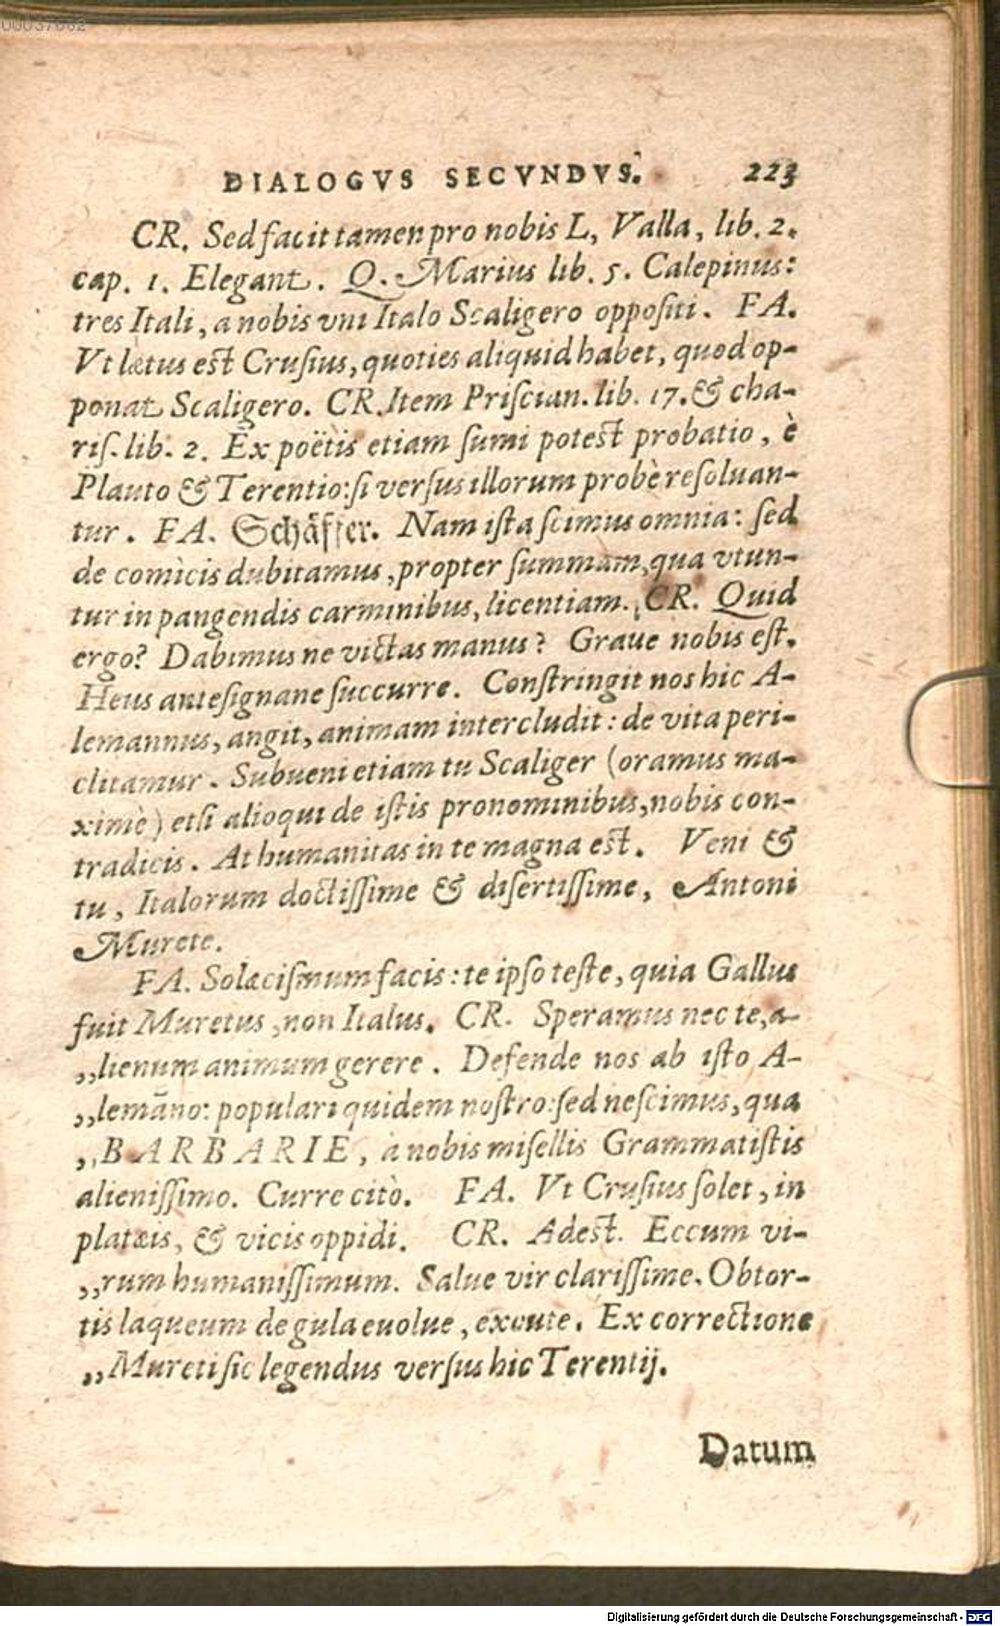 00037662
DIALOGVS SECVNDVS. 223
CR. Sed facit tamen pro nobis L, Valla, lib. 2.
cap. 1. Elegant. Q. Marius lib. 5. Calepinus:
tres Itali, a nobis vni Italo Scaligero oppositi. FA.
Vt lætus est Crusius, quoties aliquid habet, quod op-
ponat Scaligero. CR. Item Priscian. lib. 17. & cha-
ris. lib. 2. Ex poëtis etiam sumi potest probatio, è
Plauto & Terentio: si versus illorum probè resoluan-
tur. FA. Schäffer. Nam ista scimus omnia: sed
de comìcis dubitamus, propter summam, qua vtun-
tur in pangendis carminibus, licentiam. CR. Quid
ergo? Dabimus ne victas manus? Graue nobis est.
Heus antesignane succurre. Constringit nos hic A-
lemannus, angit, animam intercludit: de vita peri-
clitamur. Subueni etiam tu Scaliger (oramus ma-
ximè) etsi alioqui de istis pronominibus, nobis con-
tradicis. At humanitas in te magna est. Veni &
tu, Italorum doctissime & disertissime, Antoni
Murete.
FA. Solæcismum facis: te ipso teste, quia Gallus
fuit Muretus, non Italus. CR. Speramus nec te, a-
,,lienum animum gerere. Defende nos ab isto A-
,,lemāno: populari quidem nostro: sed nescimus, qua
,,BARBARIE, à nobis misellis Grammatistis
alienissimo. Curre citò. FA. Vt Crusius solet, in
platæis, & vicis oppidi. CR. Adest. Eccum vi-
,,rum humanissimum. Salue vir clarissime. Obtor-
tis laqueum de gula euolue, excute. Ex correctione
,,Mureti sic legendus versus hic Terentij.
Datum
Digitalisierung gefördert durch die Deutsche Forschungsgemeinschaft - DFG